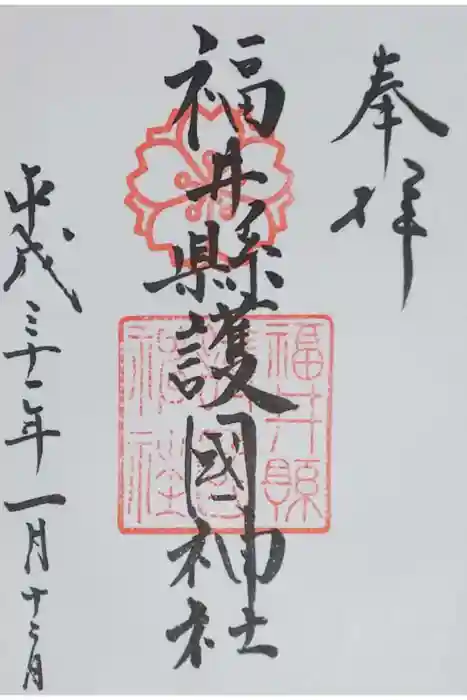 奉拝
福井縣護國神社
福井縣
護國
神社
平成三十一年一月十二日